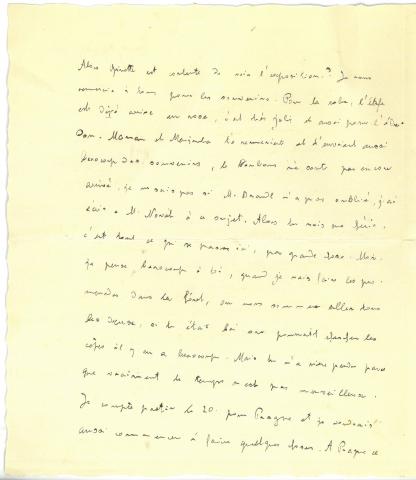 Alors Ginette est contente de voir l'exposition? Je vous
remercie à tous pour les souvenirs. Pour la robe, l'étoffe
est déjà arrivée, c'est très joli et aussi pour l'
Dom. Maman et Marienka te remercient et t'envoient aussi
beaucoup des souvenirs, le Bonbons n'a pas encore
arrivé, je ne sais pas si M. n'a pas oublié, j'ai
écris à M. Novak à ce sujet. Alors tu
c'est tout ce qui se passe ici, pas grande chose. Mais
je pense beaucoup à toi, quand je vais faire les pro-
menades dans la forêt, nous sommes allés tous
les deux, si tu étais là on pourrait chercher les
cèpes il y en a beaucoup. Mais tu n'a rien perdu parce
que vraiment le temps n'est pas merveilleux.
Je compte partir le 20. pour Prague et je voudrais
aussi commencer à faire quelques choses. A Prague ce